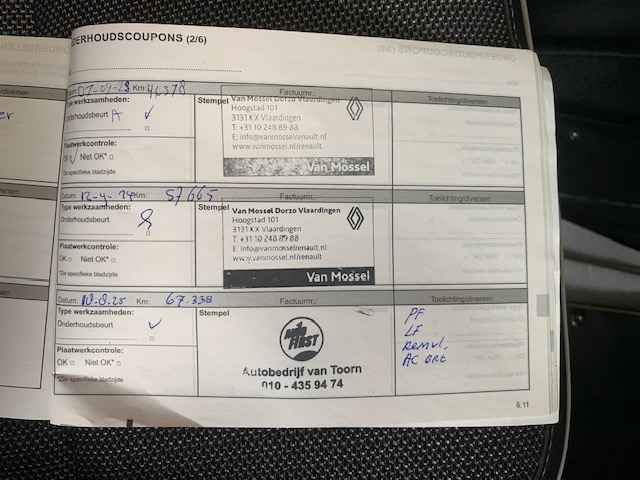 DERHOUDSCOUPONS (2/6)
Datum: 07-09-23 Km: 46378 Factuurnr.: Toelichting/diversen
Type werkzaamheden: Stempel
Onderhoudsbeurt A ✓
Plaatwerkcontrole:
OK Niet OK*
*Zie specifieke bladzijde
Van Mossel Dorzo Vlaardingen
Hoogstad 101
3131 KX Vlaardingen
T: +31 10 248 89 88
E: info@vanmosselrenault.nl
www.vanmossel.nl/renault
Van Mossel
Datum: 12-4-24 Km: 57665 Factuurnr.: Toelichting/diversen
Type werkzaamheden: Stempel
Onderhoudsbeurt
Plaatwerkcontrole:
OK Niet OK*
*Zie specifieke bladzijde
Van Mossel Dorzo Vlaardingen
Hoogstad 101
3131 KX Vlaardingen
T: +31 10 248 89 88
E: info@vanmosselrenault.nl
www.vanmossel.nl/renault
Van Mossel
Datum: Km: 67.338 Factuurnr.: Toelichting/diversen
Type werkzaamheden: Stempel
Onderhoudsbeurt ✓
Plaatwerkcontrole:
OK Niet OK*
*Zie specifieke bladzijde
FIRST
Autobedrijf van Toorn
010 - 435 94 74
PF
LF
Remvl.
AC
6.11